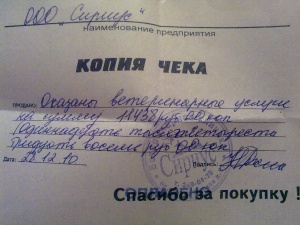 ООО „Сириус"
наименование предприятия
КОПИЯ ЧЕКА
ПРОДАНО: Оказаны ветеринарные услуги
на сумму 11438 руб. 00 коп
(Одиннадцать тысяч четыреста
тридцать восемь руб 00 коп
Дата: 22.12.10 Подпись
Сириус
Спасибо за покупку !